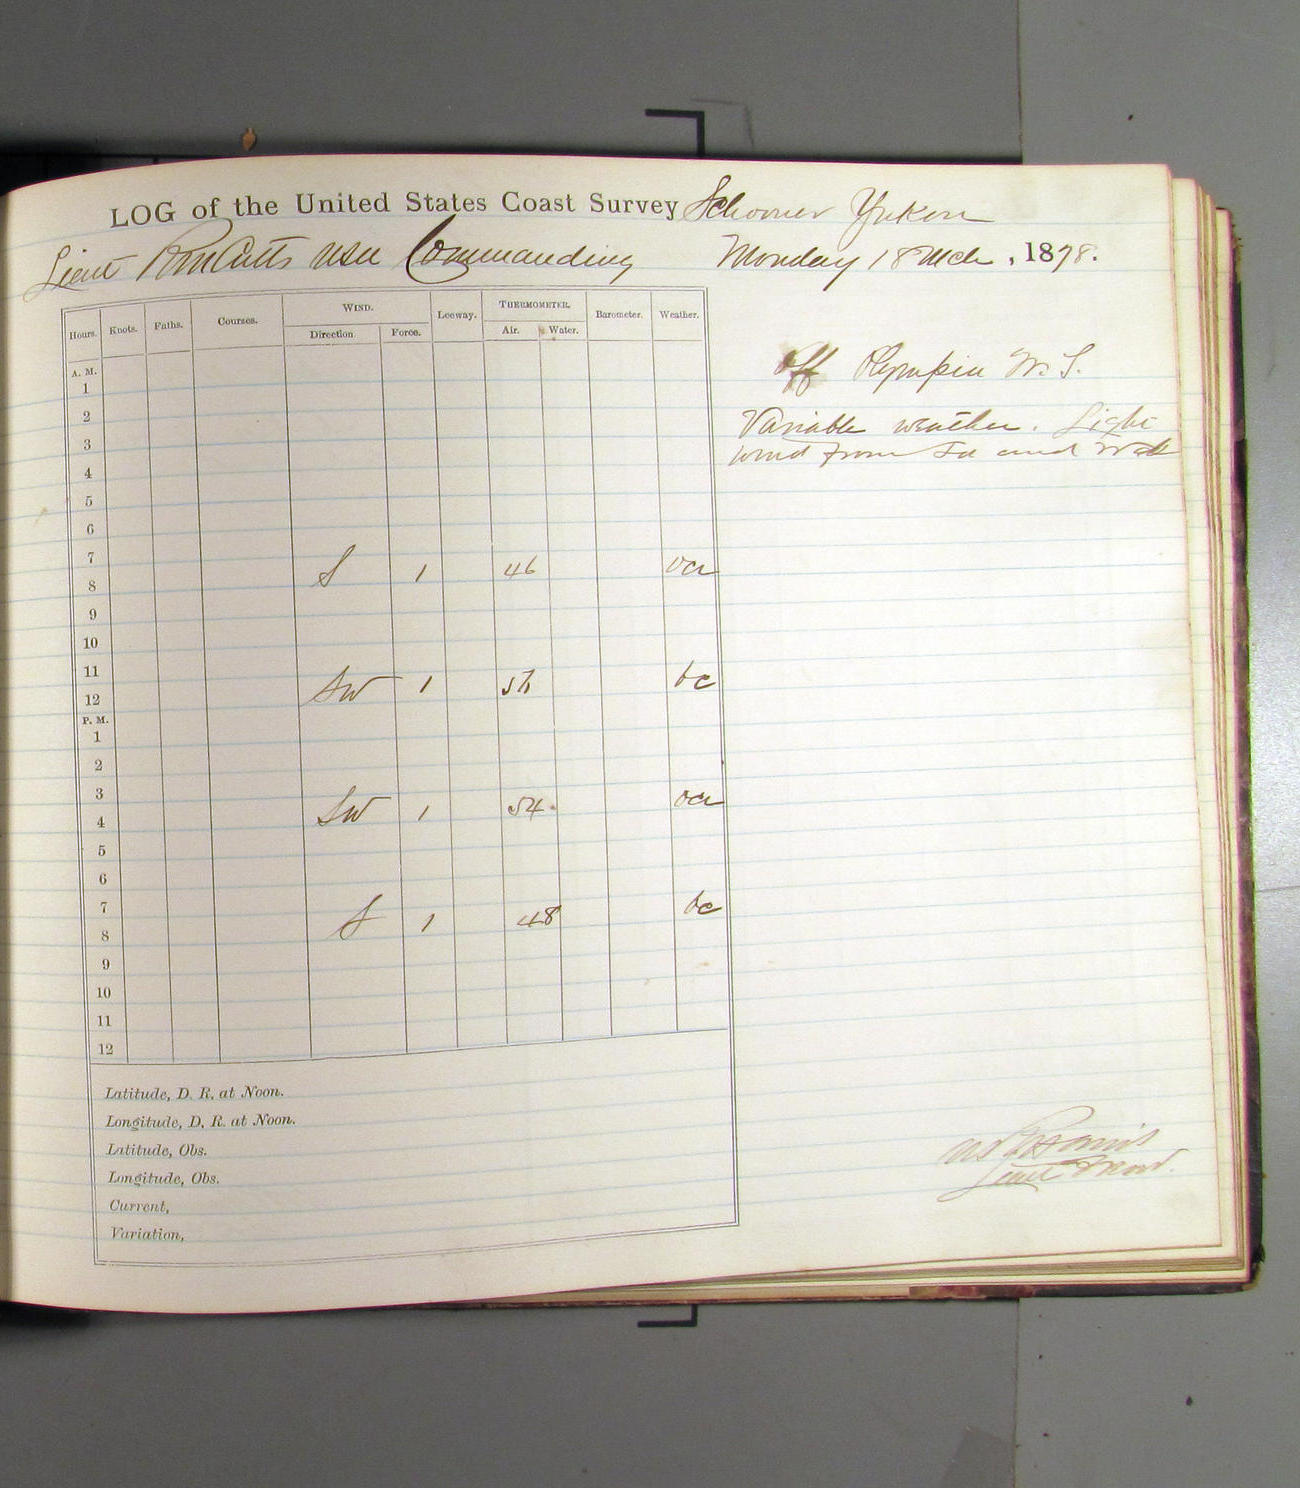 LOG of the United States Coast Survey Schooner Yukon
Lieut Commanding Monday 18 Mch, 1878.
Hours. Knots. Faths. Courses. WIND. Leeway. THERMOMETER. Barometer. Weather.
Direction Force. Air. Water.
A. M.
1
2
3
4
5
6
7
8 S 1 46
9
10
11
12 SW 1 bc
P. M.
1
2
3
4 SW 1 54
5
6
7
8 S 1 48 bc
9
10
11
12
Latitude, D. R. at Noon.
Longitude, D. R. at Noon.
Latitude, Obs.
Longitude, Obs.
Current,
Variation,
Off Olympia W. T.
Variable weather. Light
wind from and
Lieut